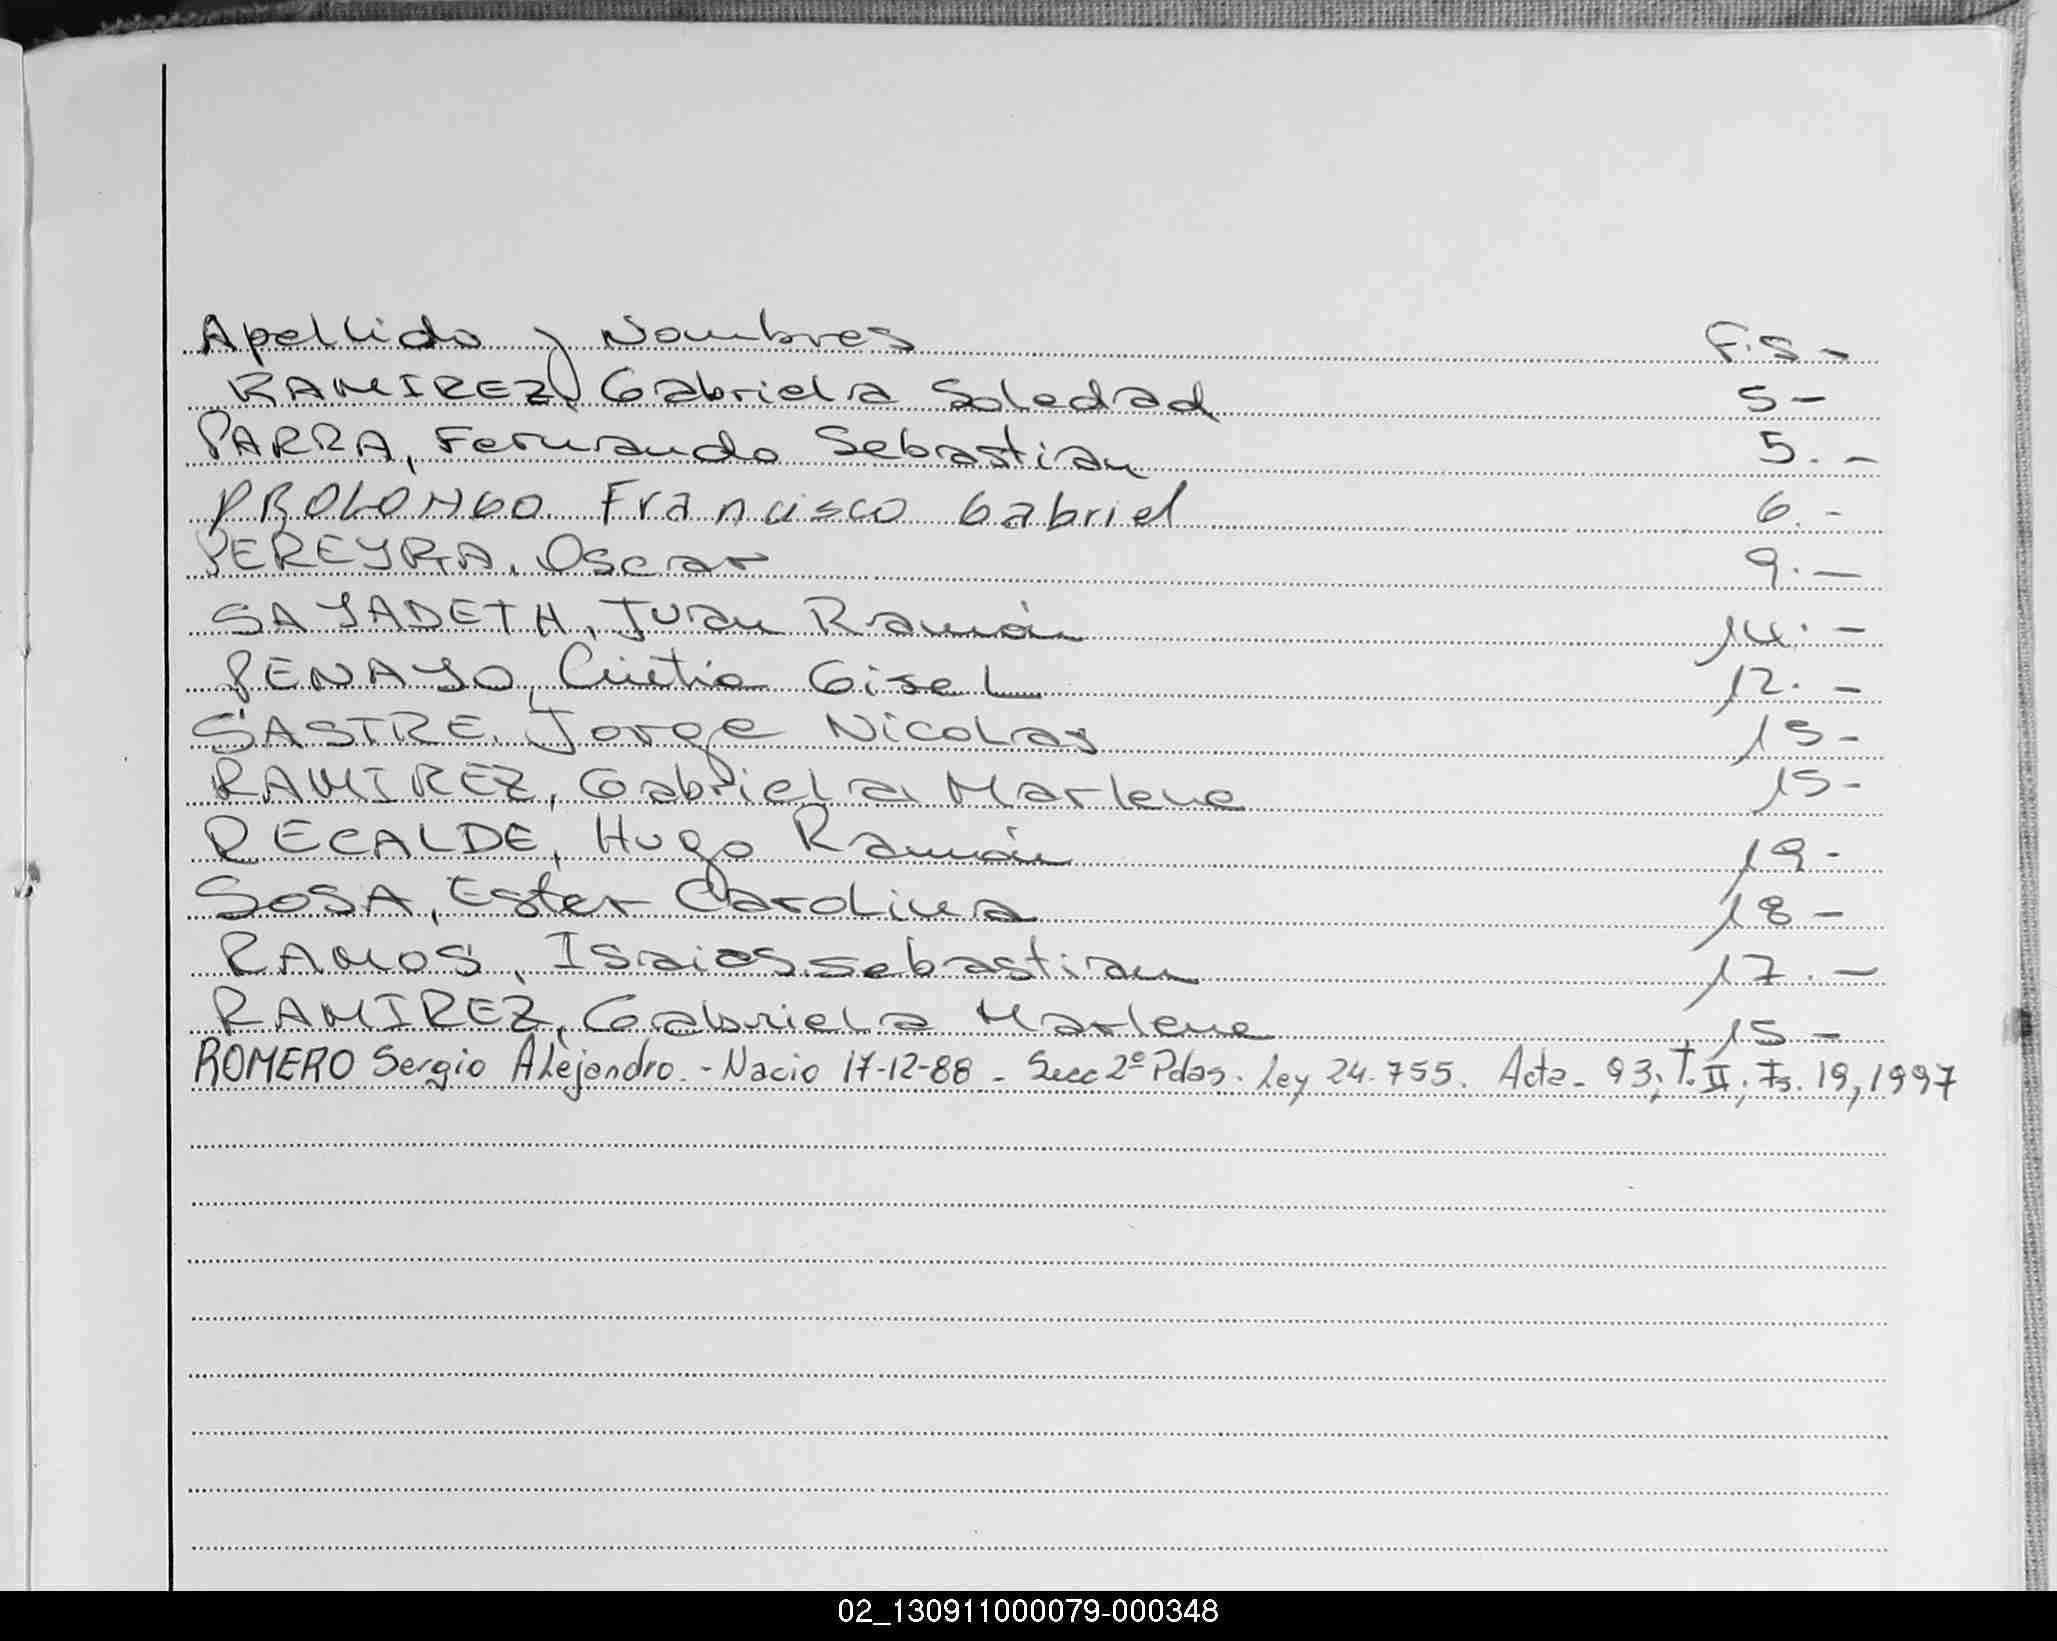 Apellido y Nombres F.S -
RAMIREZ, Gabriela Soledad 5 -
PARRA, Fernando Sebastian 5. -
PROLONGO Francisco Gabriel 6. -
PEREYRA, Oscar 9. -
SAYADETH, Juan Ramón 14. -
PENAYO, Cintia Gisel 12. -
SASTRE, Jorge Nicolas 15 -
RAMIREZ, Gabriela Marlene 15 -
RECALDE, Hugo Ramón 19 -
SOSA, Ester Carolina 18 -
RAMOS, Isaias Sebastian 17. -
RAMIREZ, Gabriela Marlene 15 -
ROMERO Sergio Alejandro. - Nacio 17-12-88 - Secc 2º Pdas. Ley 24.755. Acta - 93; T. II; Fs. 19, 1997
02_130911000079-000348